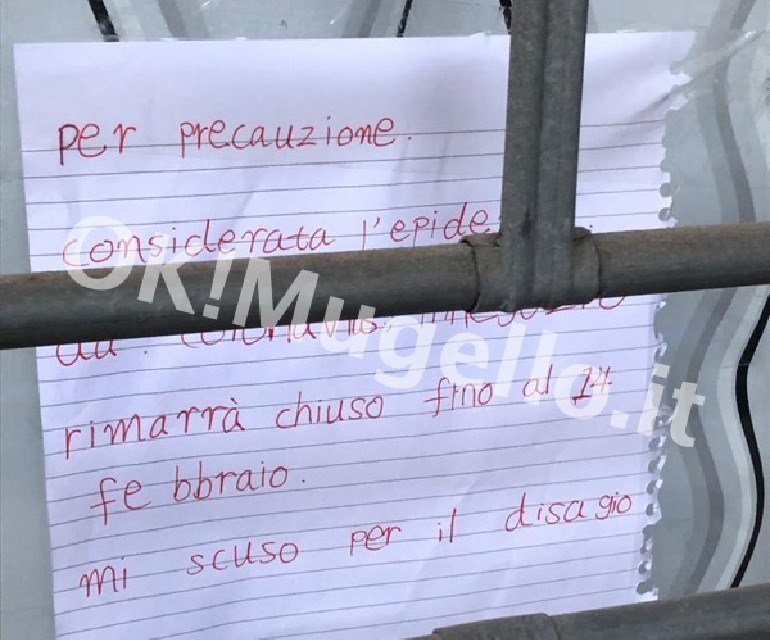 per precauzione.
considerata l'epide
da coronavirus, il negozio
rimarrà chiuso fino al 14
febbraio.
mi scuso per il disagio
OK!Mugello.it